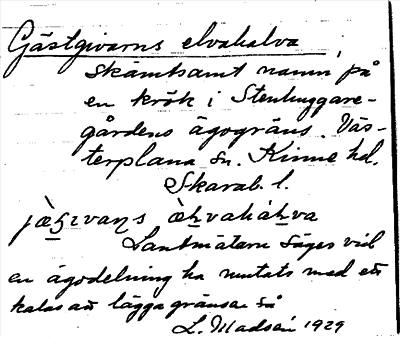 Gästgivarns elvahalva,
skämtsamt namn på
en krök i Stenhuggare-
gårdens ägogräns. Väs-
terplana sn. Kinne hd.
Skarab. l.
Lantmätarn säges vid
en ägodelning ha mutats med ett
kalas att lägga gränsen så
L. Madsén 1929